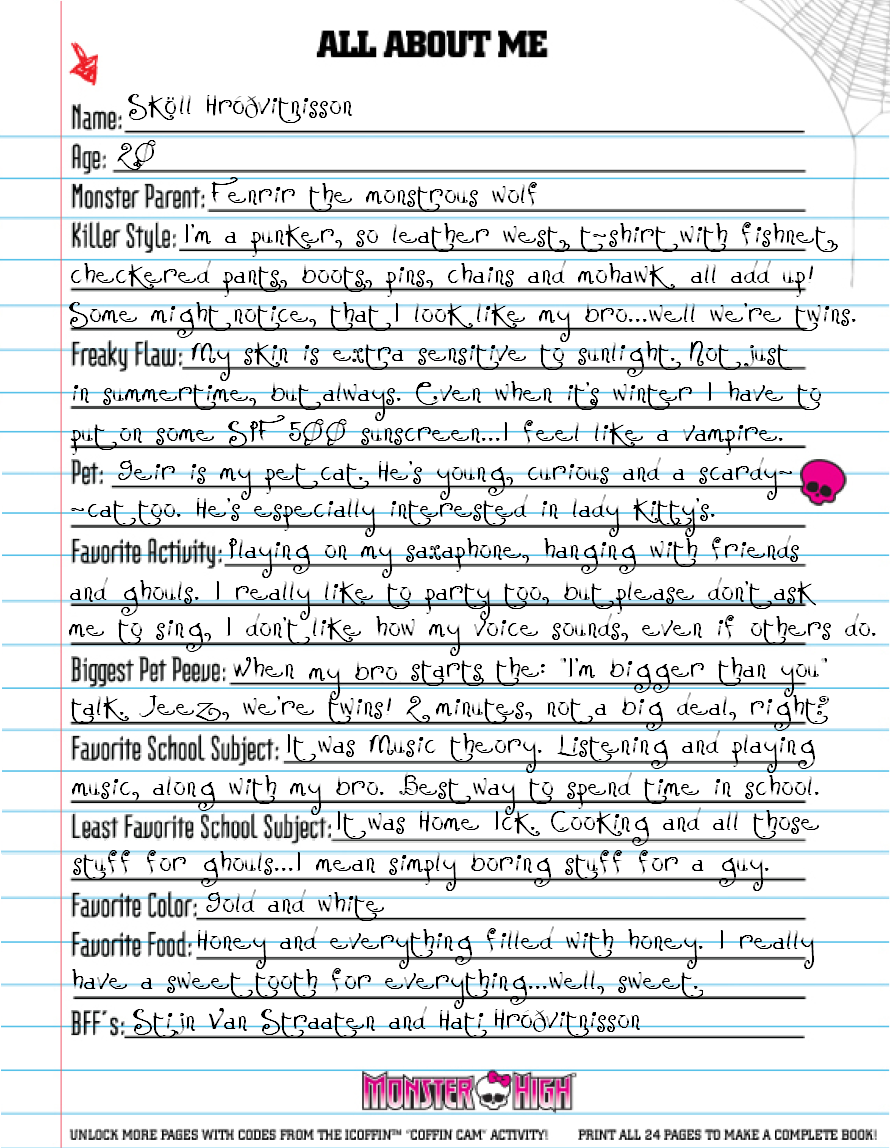 ALL ABOUT ME
Name: Sköll Hróðvitnisson
Age: 20
Monster Parent: Fenrir the monstrous wolf
Killer Style: I'm a punker, so leather west, t-shirt with fishnet,
checkered pants, boots, pins, chains and mohawk all add up!
Some might notice, that I look like my bro...well we're twins.
Freaky Flaw: My skin is extra sensitive to sunlight. Not just
in summertime, but always. Even when it's winter I have to
put on some SPF 500 sunscreen...I feel like a vampire.
Pet: Geir is my pet cat. He's young, curious and a scardy-
-cat too. He's especially interested in lady Kitty's.
Favorite Activity: Playing on my saxaphone, hanging with friends
and ghouls. I really like to party too, but please don't ask
me to sing, I don't like how my voice sounds, even if others do.
Biggest Pet Peeve: When my bro starts the: "I'm bigger than you"
talk. Jeez, we're twins! 2 minutes, not a big deal, right?
Favorite School Subject: It was Music theory. Listening and playing
music, along with my bro. Best way to spend time in school.
Least Favorite School Subject: It was Home Ick. Cooking and all those
stuff for ghouls...I mean simply boring stuff for a guy.
Favorite Color: Gold and white
Favorite Food: Honey and everything filled with honey. I really
have a sweet tooth for everything...well, sweet.
BFF's: Stijn Van Straaten and Hati Hróðvitnisson
MONSTER HIGH
UNLOCK MORE PAGES WITH CODES FROM THE ICOFFIN™ "COFFIN CAM" ACTIVITY! PRINT ALL 24 PAGES TO MAKE A COMPLETE BOOK!